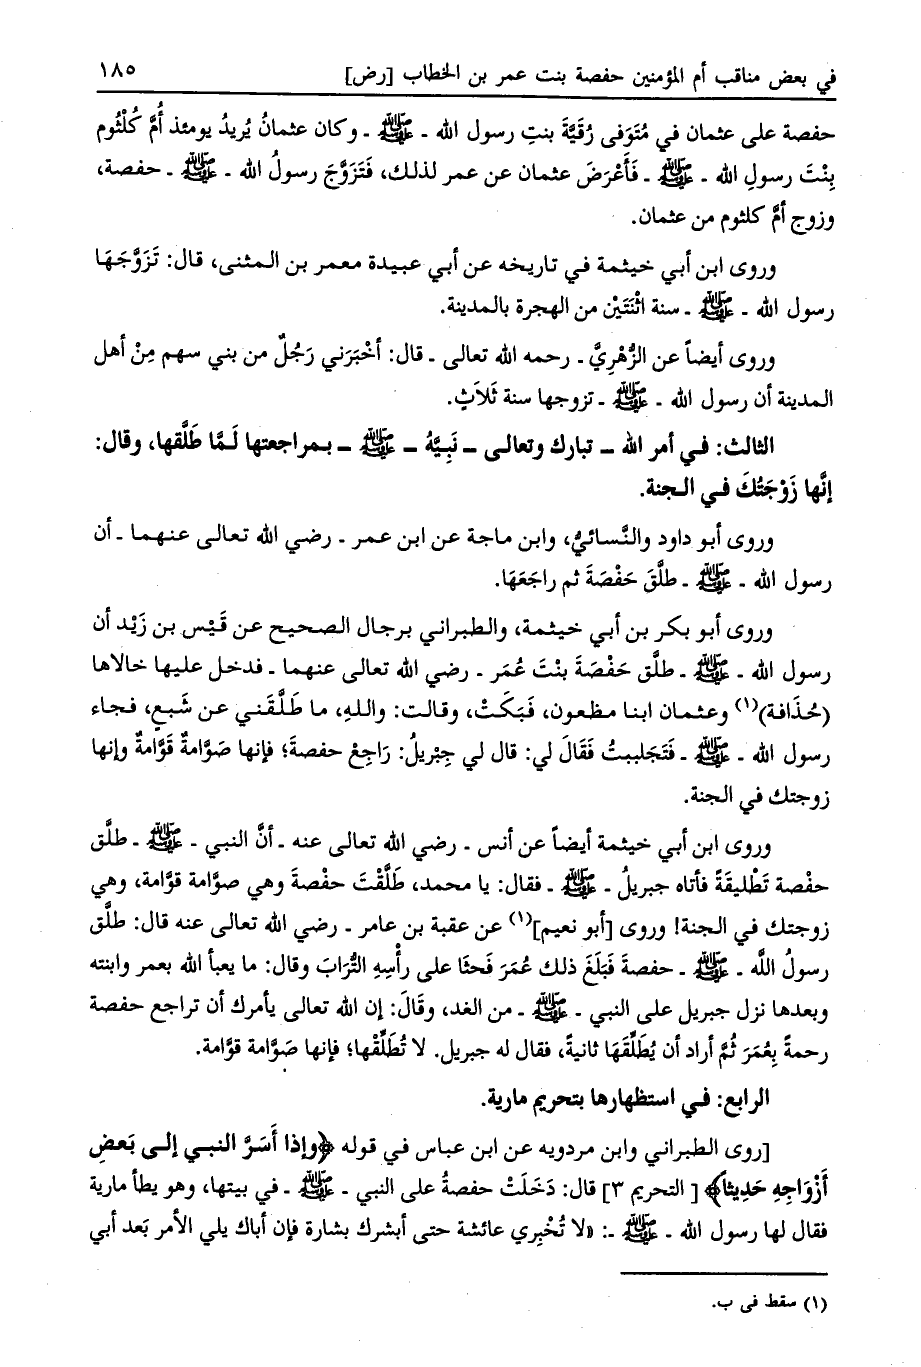 في بعض مناقب أم المؤمنين حفصة بنت عمر بن الخطاب [رض] ١٨٥
حفصة على عثمان في مُتَوَفى رُقَيَّةَ بنتِ رسول الله ـ ﷺ ـ وكان عثمانُ يُريدُ يومئذ أُمَّ كُلْثُوم
بِنْتَ رسولِ الله ـ ﷺ ـ فَأَعْرَضَ عثمان عن عمر لذلك، فَتَزَوَّجَ رسولُ الله ـ ﷺ ـ حفصة،
وزوج أمَّ كلثوم من عثمان.
وروى ابن أبي خيثمة في تاريخه عن أبي عبيدة معمر بن المثنى، قال: تَزَوَّجَهَا
رسول الله ـ ﷺ ـ سنة اثْنَتَيْن من الهجرة بالمدينة.
وروى أيضاً عن الزُّهْرِيَّ ـ رحمه الله تعالى ـ قال: أخْبَرَني رَجُلٌ من بني سهم مِنْ أهل
المدينة أن رسول الله ـ ﷺ ـ تزوجها سنة ثَلاَثٍ.
الثالث: في أمر الله ـ تبارك وتعالى ـ نَبِيَّهُ ـ ﷺ ـ بمراجعتها لَمَّا طَلَّقها، وقال:
إنَّها زَوْجَتُكَ في الجنة.
وروى أبو داود والنَّسائيُّ، وابن ماجة عن ابن عمر ـ رضي الله تعالى عنهما ـ أن
رسول الله ـ ﷺ ـ طلَّقَ حَفْصَةَ ثم راجَعَهَا.
وروى أبو بكر بن أبي خيثمة، والطبراني برجال الصحيح عن قَيْس بن زَيْد أن
رسول الله ـ ﷺ ـ طلَّق حَفْصَةَ بنْتَ عُمَر ـ رضي الله تعالى عنهما ـ فدخل عليها خالاها
(حُذَافة)(١) وعثمان ابنا مظعون، فَبَكَتْ، وقالت: واللهِ، ما طَلَّقَني عن شَبعٍ، فجاء
رسول الله ـ ﷺ ـ فَتَجَلببتُ فَقَالَ لي: قال لي جِبْريلُ: رَاجِعْ حفصةَ؛ فإنها صَوَّامةٌ قَوَّامةٌ وإنها
زوجتك في الجنة.
وروى ابن أبي خيثمة أيضاً عن أنس ـ رضي الله تعالى عنه ـ أنَّ النبي ـ ﷺ ـ طلَّق
حفْصة تَطْليقَةً فأتاه جبريلُ ـ ﷺ ـ فقال: يا محمد، طَلَّقْتَ حفْصةَ وهي صوَّامة قوَّامة، وهي
زوجتك في الجنة! وروى [أبو نعيم](١) عن عقبة بن عامر ـ رضي الله تعالى عنه قال: طلَّق
رسولُ اللَّه ـ ﷺ ـ حفصةَ فَبَلَغَ ذلك عُمَرَ فَحثَا على رأْسِهِ التُّرَابَ وقال: ما يعبأ الله بعمر وابنته
وبعدها نزل جبريل على النبي ـ ﷺ ـ من الغد، وقَالَ: إن الله تعالى يأمرك أن تراجع حفصة
رحمةً بِعُمَرَ ثُمَّ أراد أن يُطَلِّقَهَا ثانيةً، فقال له جبريل. لا تُطَلِّقْها؛ فإنها صَوَّامة قوَّامة.
الرابع: في استظهارها بتحريم مارية.
[روى الطبراني وابن مردويه عن ابن عباس في قوله ﴿وإذا أَسَرَّ النبي إلى بَعضِ
أَزْوَاجِهِ حَدِيثاً﴾ [التحريم ٣] قال: دَخَلَتْ حفصةُ على النبي ـ ﷺ ـ في بيتها، وهو يطأ مارية
فقال لها رسول الله ـ ﷺ ـ: «لا تُخْبِري عائشة حتى أبشرك بشارة فإن أباك يلي الأمر بَعد أبي
(١) سقط في ب.